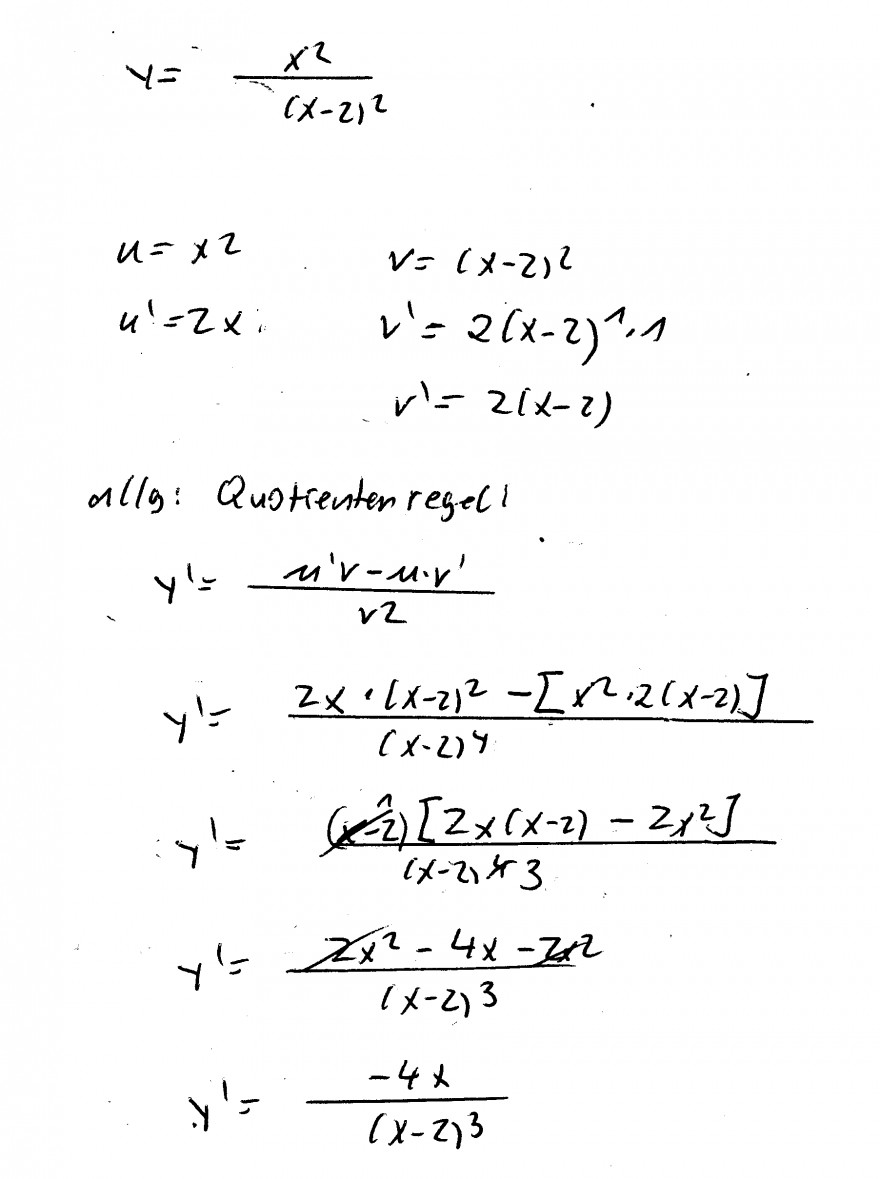 y = x² / (x-2)²
u = x²    v = (x-2)²
u' = 2x    v' = 2(x-2)¹·1
v' = 2(x-2)
allg: Quotientenregel:
y' = (u'v - u·v') / v²
y' = (2x · (x-2)² - [x²·2(x-2)]) / (x-2)⁴
y' = (x-2)¹ [2x(x-2) - 2x²] / (x-2)⁴ 3
y' = (2x² - 4x - 2x²) / (x-2)³
y' = -4x / (x-2)³